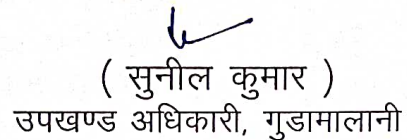 ( सुनील कुमार )
उपखण्ड अधिकारी, गुडामालानी